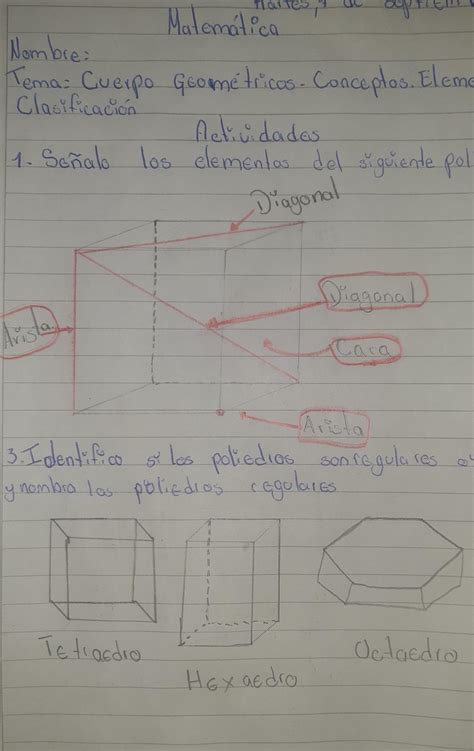 Martes, 7 de septiem
Matemática
Nombre:
Tema: Cuerpo Geométricos - Conceptos. Eleme
Clasificación
Actividades
1. Señalo los elementos del siguiente pol
Diagonal
Diagonal
Arista
Cara
Arista
3. Identifico si los poliedros son regulares o
y nombro los poliedros regulares
Tetraedro
Hexaedro
Octaedro